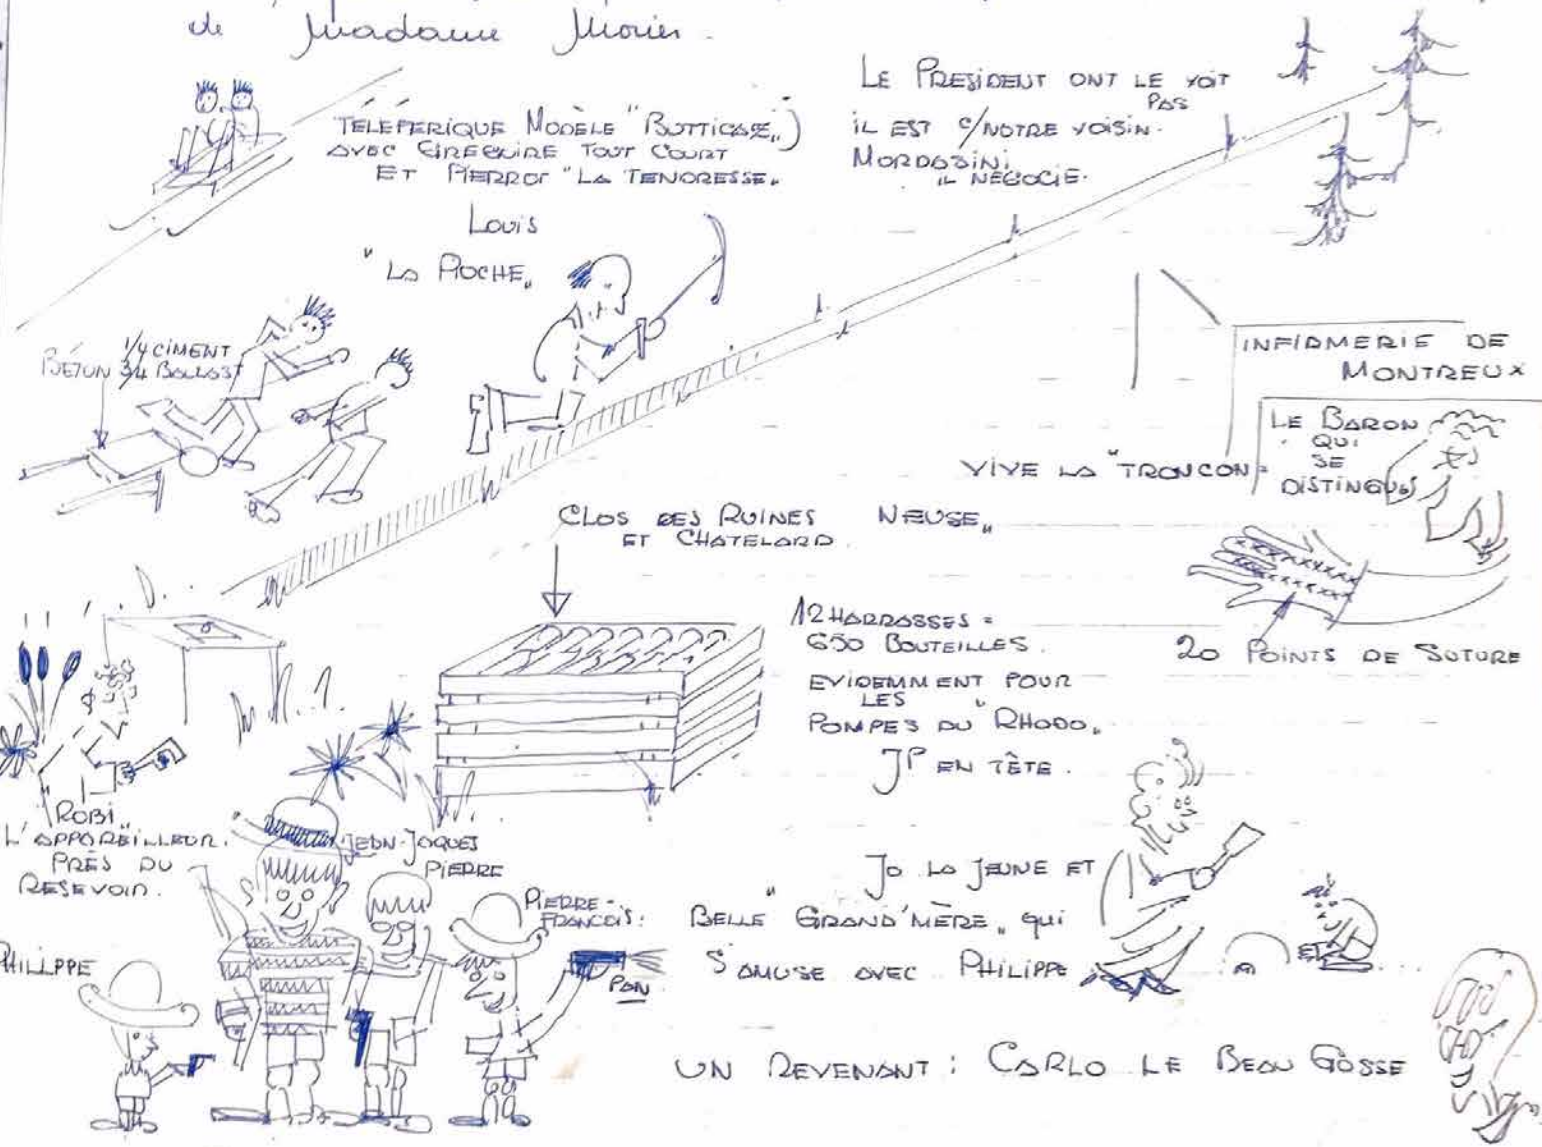 de Madame Morier.
TÉLÉFERIQUE MODÈLE "BUTTICAZ")
AVEC GREGOIRE TOUT COURT
ET PIERROT "LA TENDRESSE"
LE PRESIDENT ONT LE VOIT
PAS
IL EST C/NOTRE VOISIN.
MORDASINI
IL NÉGOCIE.
LOUIS
"LA PIOCHE"
BÉTON 1/4 CIMENT
3/4 BALLAST
INFIRMERIE DE
MONTREUX
LE BARON
QUI
SE
DISTINGUE
VIVE LA "TRONCON=
NEUSE"
CLOS DES RUINES
ET CHATELARD.
20 POINTS DE SUTURE
12 HARRASSES =
650 BOUTEILLES.
EVIDEMMENT POUR
LES
POMPES DU "RHODO"
JP EN TÊTE.
ROBI
L'APPAREILLEUR.
PRÈS DU
RESEVOIR.
JEAN-JAQUES
PIERRE
PIERRE-
FRANCOIS.
PHILLPPE
PAN
JO LA JEUNE ET
BELLE "GRAND'MÈRE" qui
S'AMUSE AVEC PHILIPPE
UN REVENANT : CARLO LE BEAU GOSSE